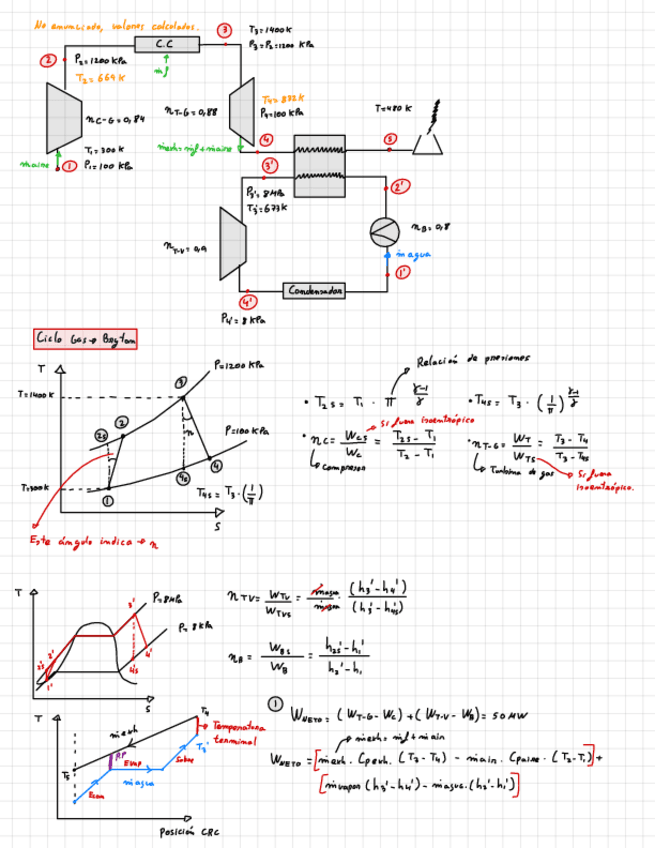 No enunciado, valores calculados.
3
T3=1400K
P3=P2=1200 KPa
C.C
2
P2=1200 KPa
T2=664 K
mf
ηC-G=0,84
ηT-G=0,88
P4=100 KPa
T=480 K
T1=300K
P1=100 KPa
maire
1
mexh=mf+maire
4
5
3'
P3'=8MPa
T3'=673K
2'
ηB=0,8
ηT-V=0,9
magua
1'
Condensador
4'
P4'=8 KPa
Ciclo Gas → Brayton
T
P=1200 KPa
T=1400K
3
2s
2
η
P=100 KPa
4
4s
T=300K
1
T4s=T3·(1/π)
S
Este ángulo indica → η
Relación de presiones
• T2s = T1 · π^(γ-1/γ)
• T4s = T3 · (1/π)^(γ-1/γ)
Si fuera isoentrópico
• ηC = WCs/WC = T2s - T1/T2 - T1
Compresor
• ηT-G = WT/WTs = T3 - T4/T3 - T4s
Turbina de gas
Si fuera isoentrópico.
T
P=8MPa
P=8KPa
3'
2s'
2'
1'
4s'
4'
S
ηTV = WTV/WTVs = magua/magua · (h3'-h4')/(h3'-h4s')
ηB = WBs/WB = h2s'-h1'/h2'-h1'
T
T4
Temperatura terminal
mexh
T3'
PP
T5
Evap
Sobre
magua
Econ
Posición CRC
1
WNETO = (WT-G - WC) + (WT-V - WB) = 50 MW
mexh = mf + main
WNETO = [mexh · Cpexh · (T3 - T4) - main · Cpaire · (T2 - T1)] +
[mvapor (h3'-h4') - magua · (h2'-h1')]